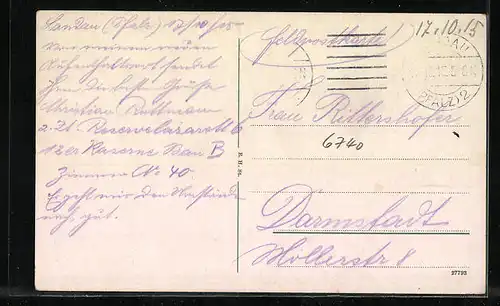 Landau (Pfalz) 17/10/15
von meinem neuen
Aufenthaltsort sendet
Ihnen die besten Grüße
Christian Rettmann
z. Zt. Reservelazarett 6
12er Kaserne Bau B
Zimmer No. 40.
Es geht mir den Umständen
nach gut.
Feldpostkarte!
17.10.15
(PFALZ) 2
Frau Rittershofer
6740
Darmstadt
Möllerstr 8
27793